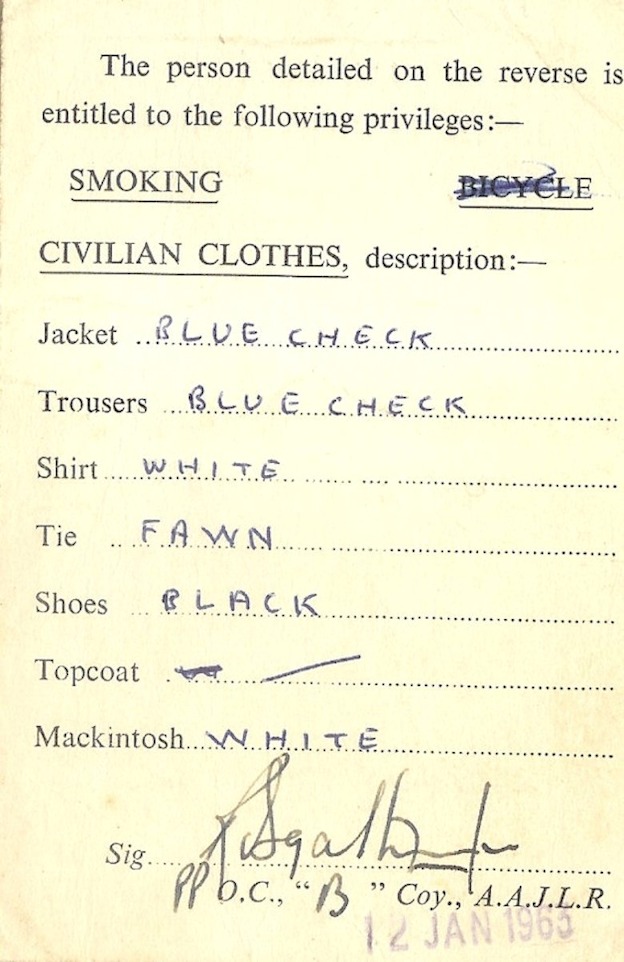 The person detailed on the reverse is
entitled to the following privileges:—
SMOKING BICYCLE
CIVILIAN CLOTHES, description:—
Jacket BLUE CHECK
Trousers BLUE CHECK
Shirt WHITE
Tie FAWN
Shoes BLACK
Topcoat
Mackintosh WHITE
Sig
PP O.C., "B" Coy., A.A.J.L.R.
12 JAN 1965